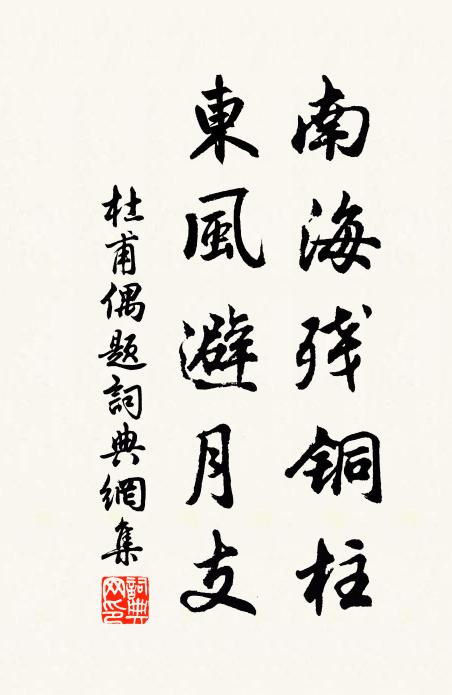 南海残铜柱
東風避月支
杜甫偶題詞典網集
詞典网印